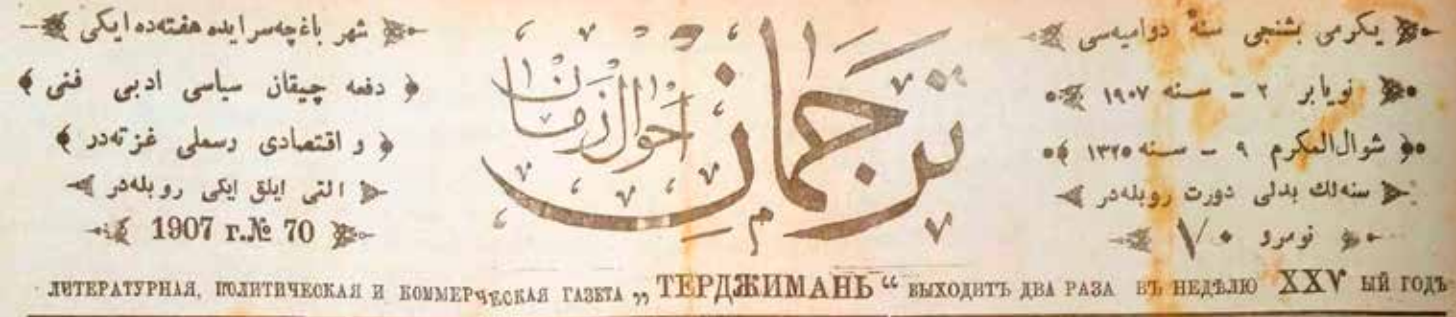 یكرمی بشنجی سنهٔ دوامیه‌سی
نویابر ۲ ـ سنه ۱۹۰۷
شوال‌المكرم ۹ ـ سنه ۱۳۲۵
سنه‌لك بدلی دورت روبله‌در
نومرو ۷۰
ترجمان
احوال زمان
شهر باغچه‌سرایده هفته‌ده ایكی
دفعه چیقان سیاسی ادبی فنی
و اقتصادی رسملی غزته‌در
التی ایلق ایكی روبله‌در
1907 г.№ 70
ЛИТЕРАТУРНАЯ, ПОЛИТИЧЕСКАЯ И КОММЕРЧЕСКАЯ ГАЗЕТА „ТЕРДЖИМАНЬ“ ВЫХОДИТЪ ДВА РАЗА ВЪ НЕДѢЛЮ XXV ЫЙ ГОДЪ